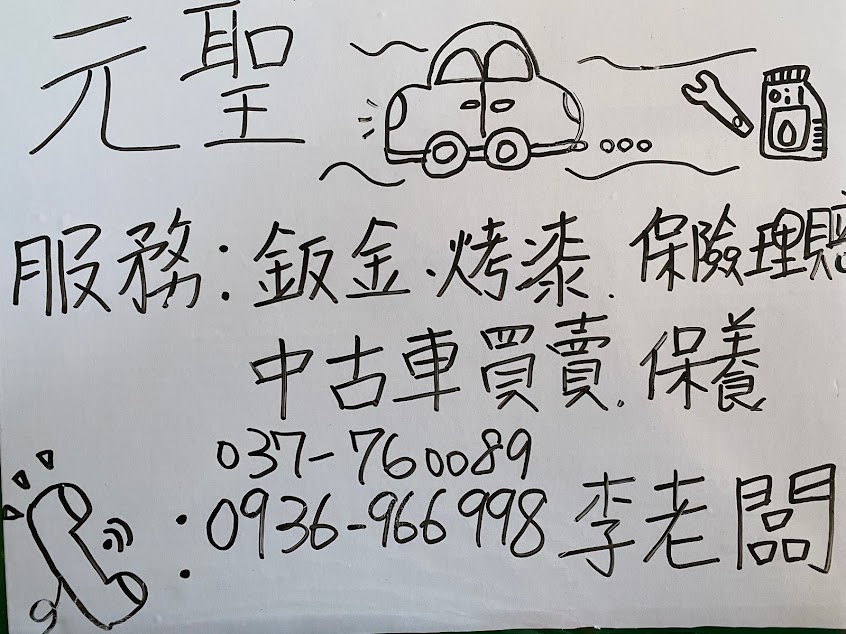 元聖
oil
服務:鈑金.烤漆.保險理賠
中古車買賣.保養
037-760089
:0936-966998 李老闆